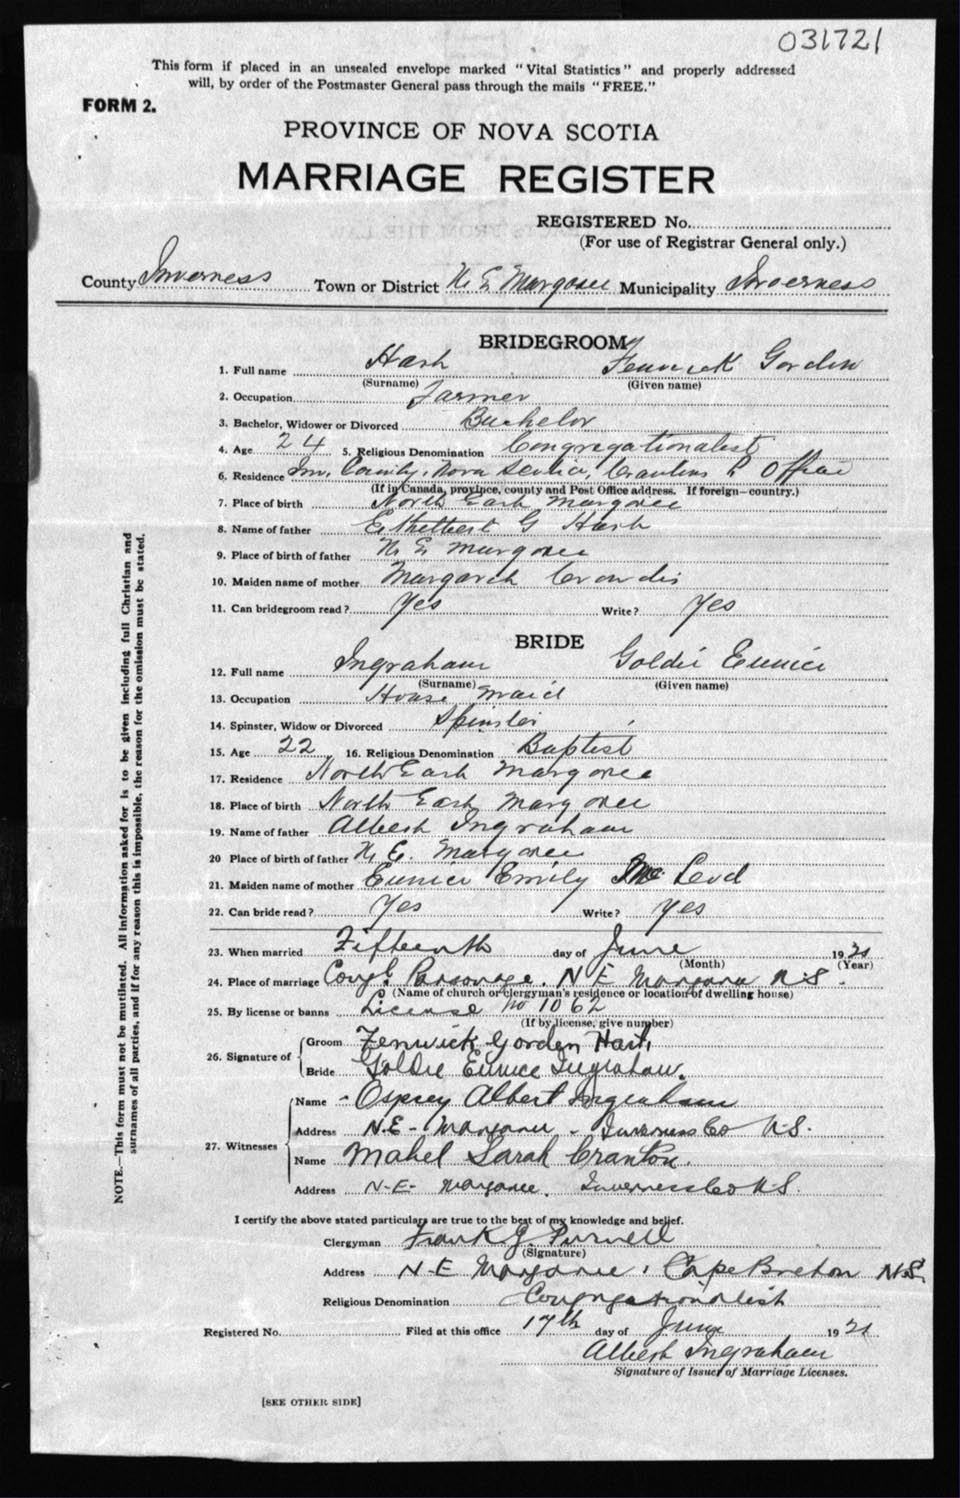 031721
This form if placed in an unsealed envelope marked "Vital Statistics" and properly addressed
will, by order of the Postmaster General pass through the mails "FREE."
FORM 2.
PROVINCE OF NOVA SCOTIA
MARRIAGE REGISTER
REGISTERED No.
(For use of Registrar General only.)
County Inverness Town or District N. E. Margaree Municipality Inverness
BRIDEGROOM
1. Full name Hart Fenwick Gordon
(Surname) (Given name)
2. Occupation Farmer
3. Bachelor, Widower or Divorced Bachelor
4. Age 24 5. Religious Denomination Congregationalist
6. Residence Inv. County, Nova Scotia, Crantons P Office
(If in Canada, province, county and Post Office address. If foreign—country.)
7. Place of birth North East Margaree
8. Name of father Ethelbert G Hart
9. Place of birth of father N. E. Margaree
10. Maiden name of mother Margaret Crowdis
11. Can bridegroom read? Yes Write? Yes
BRIDE
12. Full name Ingraham Goldie Eunice
(Surname) (Given name)
13. Occupation House maid
14. Spinster, Widow or Divorced Spinster
15. Age 22 16. Religious Denomination Baptist
17. Residence North East Margaree
18. Place of birth North East Margaree
19. Name of father Albert Ingraham
20 Place of birth of father N. E. Margaree
21. Maiden name of mother Eunice Emily McLeod
22. Can bride read? Yes Write? Yes
23. When married Fifteenth day of June 1921
(Month) (Year)
24. Place of marriage Cong'l Parsonage, N E Margaree N.S.
(Name of church or clergyman's residence or location of dwelling house)
25. By license or banns License No 1062
(If by license, give number)
26. Signature of Groom Fenwick Gorden Hart
Bride Goldie Eunice Ingraham.
27. Witnesses Name Osprey Albert Ingraham
Address N.E. Margaree - Inverness Co N.S.
Name Mabel Sarah Cranton.
Address N-E- Margaree. Inverness Co N.S.
I certify the above stated particulars are true to the best of my knowledge and belief.
Clergyman Frank J. Purnell
(Signature)
Address N-E Margaree, Cape Breton N.S.
Religious Denomination Congregationalist
Registered No. Filed at this office 17th day of June 1921
Albert Ingraham
Signature of Issuer of Marriage Licenses.
[SEE OTHER SIDE]
NOTE.—This form must not be mutilated. All information asked for is to be given including full Christian and
surnames of all parties, and if for any reason this is impossible, the reason for the omission must be stated.